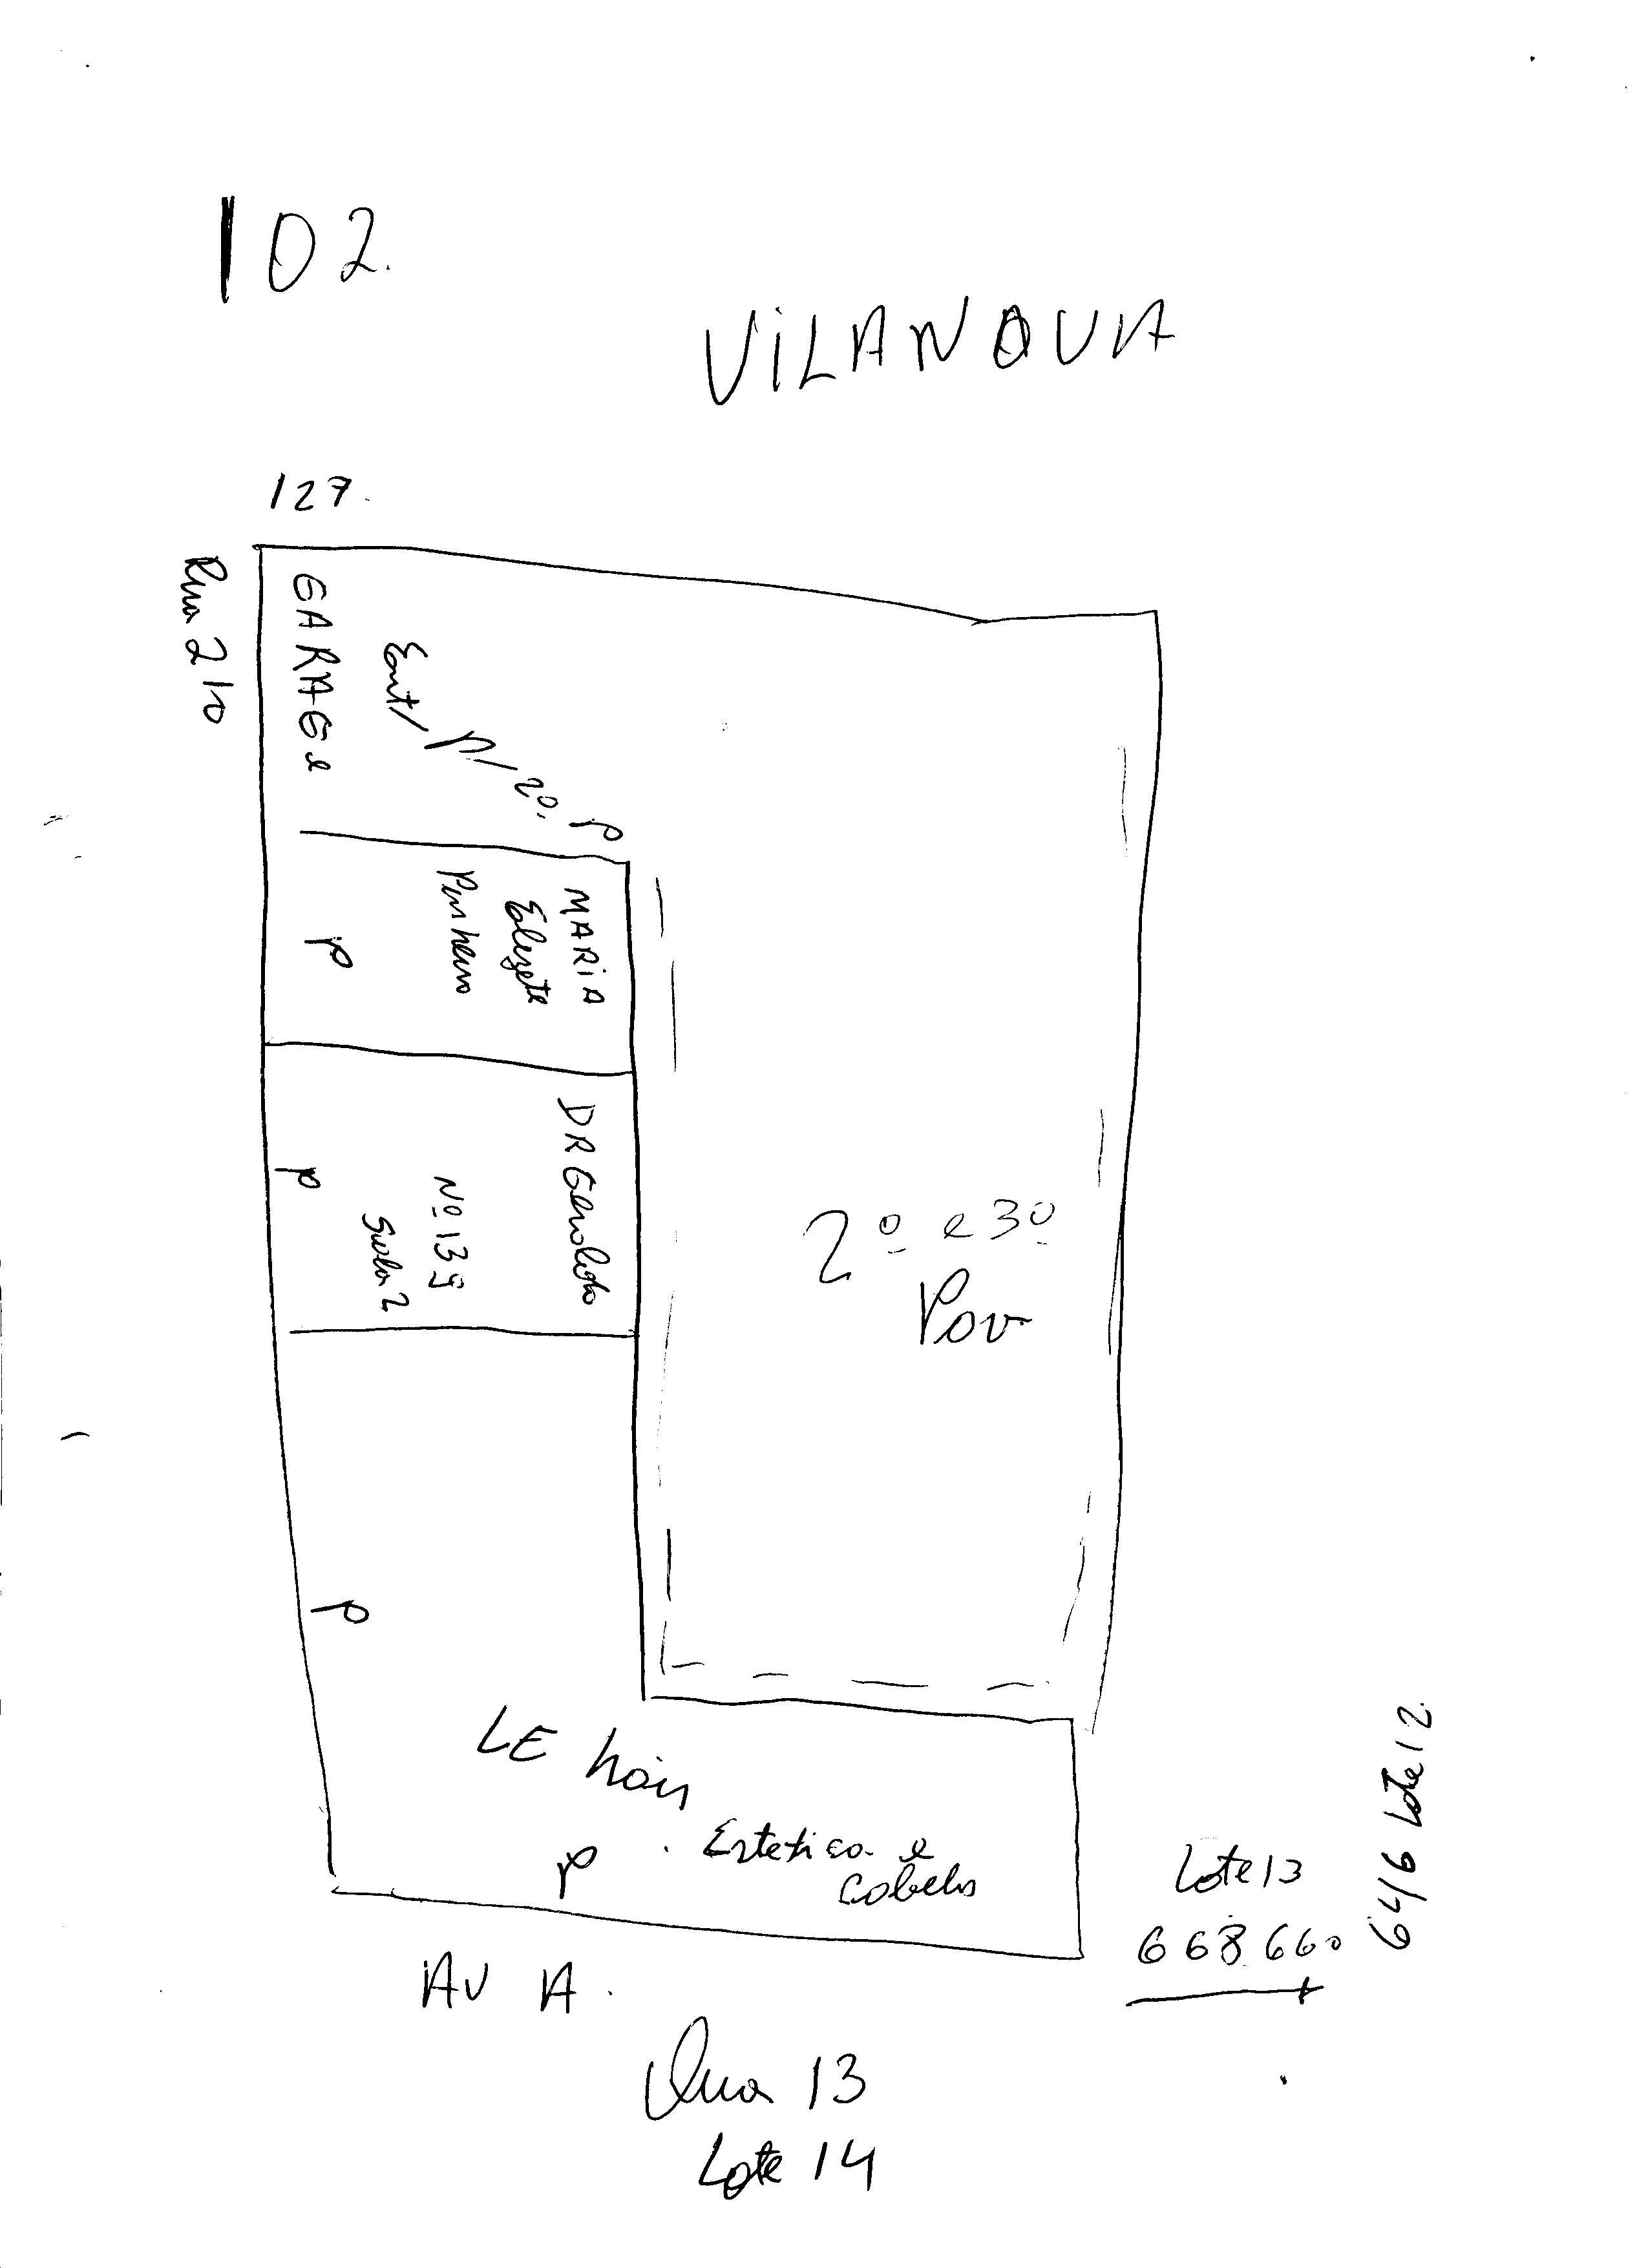 102.
VILANOVA
127.
Rua 210
GARAGe
Ent/ P/ 2º. P
MARIA
Elizete
Pinheiro
P
DR Geraldo
Nº 139
Sala 2
P
2º e 3º
Pav
P
LE
P
Estetica e
Cabelos
AV A.
Lote 13
668660
6416 Lote 12
Qua 13
Lote 14